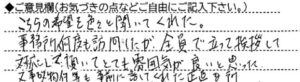 ◆ご意見欄(お気づきの点などご自由にご記入下さい。)
こちらの希望を色々と聞いてくれた。
事務所何度も訪問したが全員で立って挨拶して
対応して頂いてとても雰囲気が良いと思った